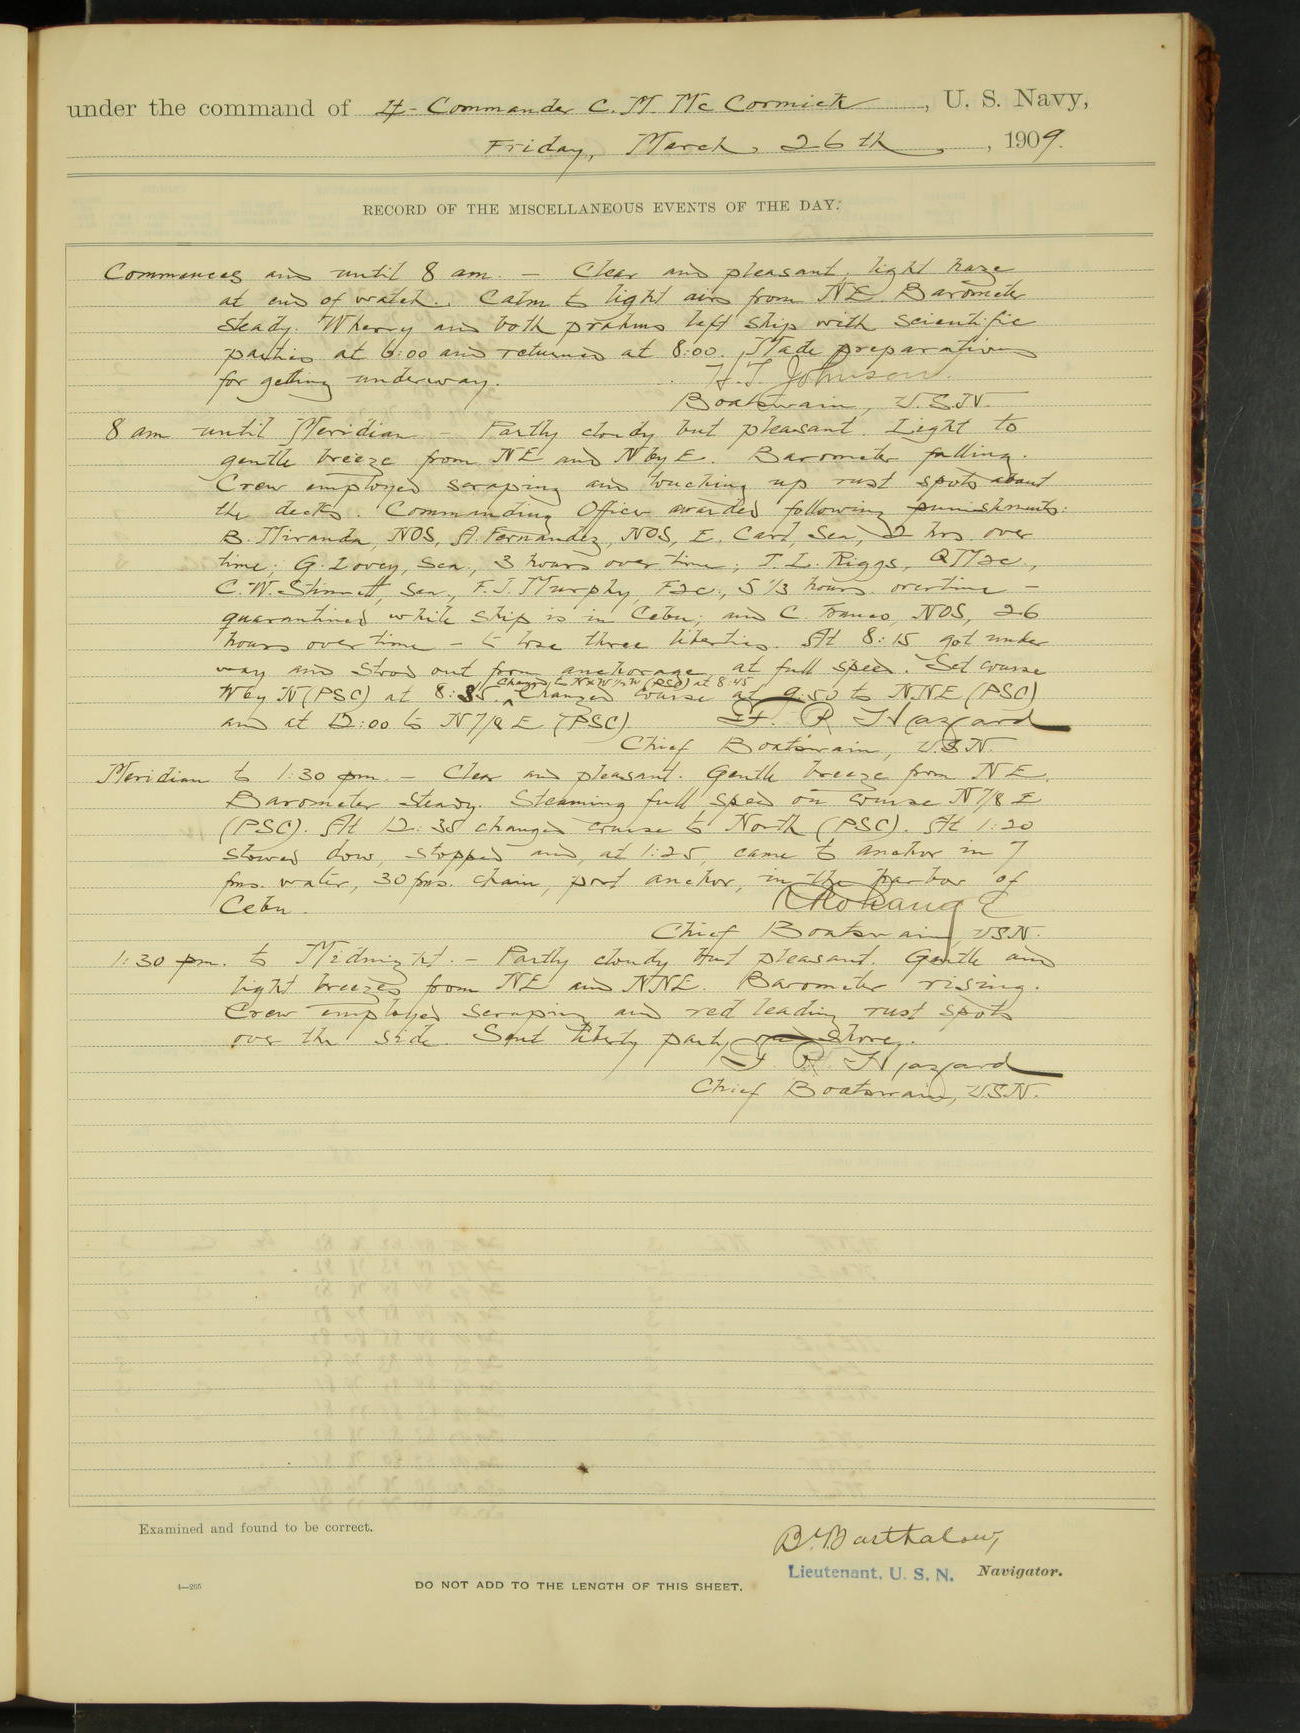 under the command of Lt-Commander C. M. McCormick, U. S. Navy,
Friday, March, 26th, 1909.
RECORD OF THE MISCELLANEOUS EVENTS OF THE DAY.
Commences and until 8 am. — Clear and pleasant, light haze
at end of watch. Calm to light airs from NE. Barometer
steady. Wherry and both prahms left ship with scientific
parties at 6:00 and returned at 8:00. Made preparations
for getting underway. H. T. Johnson.
Boatswain, U.S.N.
8 am until Meridian — Partly cloudy but pleasant. Light to
gentle breeze from NE and N by E. Barometer falling.
Crew employed scraping and touching up rust spots about
the decks. Commanding Officer awarded following punishments:
B. Miranda, NOS, A. Fernandez, NOS, E. Carl, Sea, 2 hrs. over
time; G. Lovey, Sea., 3 hours over time; T. L. Riggs, QM2c.,
C. W. Stinnett, Sea., F. J. Murphy, F2c., 5 1/3 hours overtime —
quarantined while ship is in Cebu; and C. Franco, NOS, 26
hours over time — to lose three liberties. At 8:15 got under
way and stood out from anchorage at full speed. Set course
Changed to NxW½W (PSC) at 8:45
W by N (PSC) at 8:35. ^ Changed course at 9:50 to NNE (PSC)
and at 12:00 to N 7/8 E (PSC). F. R. Hazard
Chief Boatswain, U.S.N.
Meridian to 1:30 pm. — Clear and pleasant. Gentle breeze from NE.
Barometer steady. Steaming full speed on course N 7/8 E
(PSC). At 12:35 changed course to North (PSC). At 1:20
slowed down, stopped and, at 1:25, came to anchor in 7
fms. water, 30 fms. chain, port anchor, in the harbor of
Cebu.
Chief Boatswain, USN.
1:30 pm. to Midnight. — Partly cloudy but pleasant. Gentle and
light breezes from NE and NNE. Barometer rising.
Crew employed scraping and red leading rust spots
over the side. Sent liberty party on shore.
F. R. Hazard
Chief Boatswain, USN.
Examined and found to be correct.
B. Barthalow,
Lieutenant, U. S. N. Navigator.
4—265
DO NOT ADD TO THE LENGTH OF THIS SHEET.